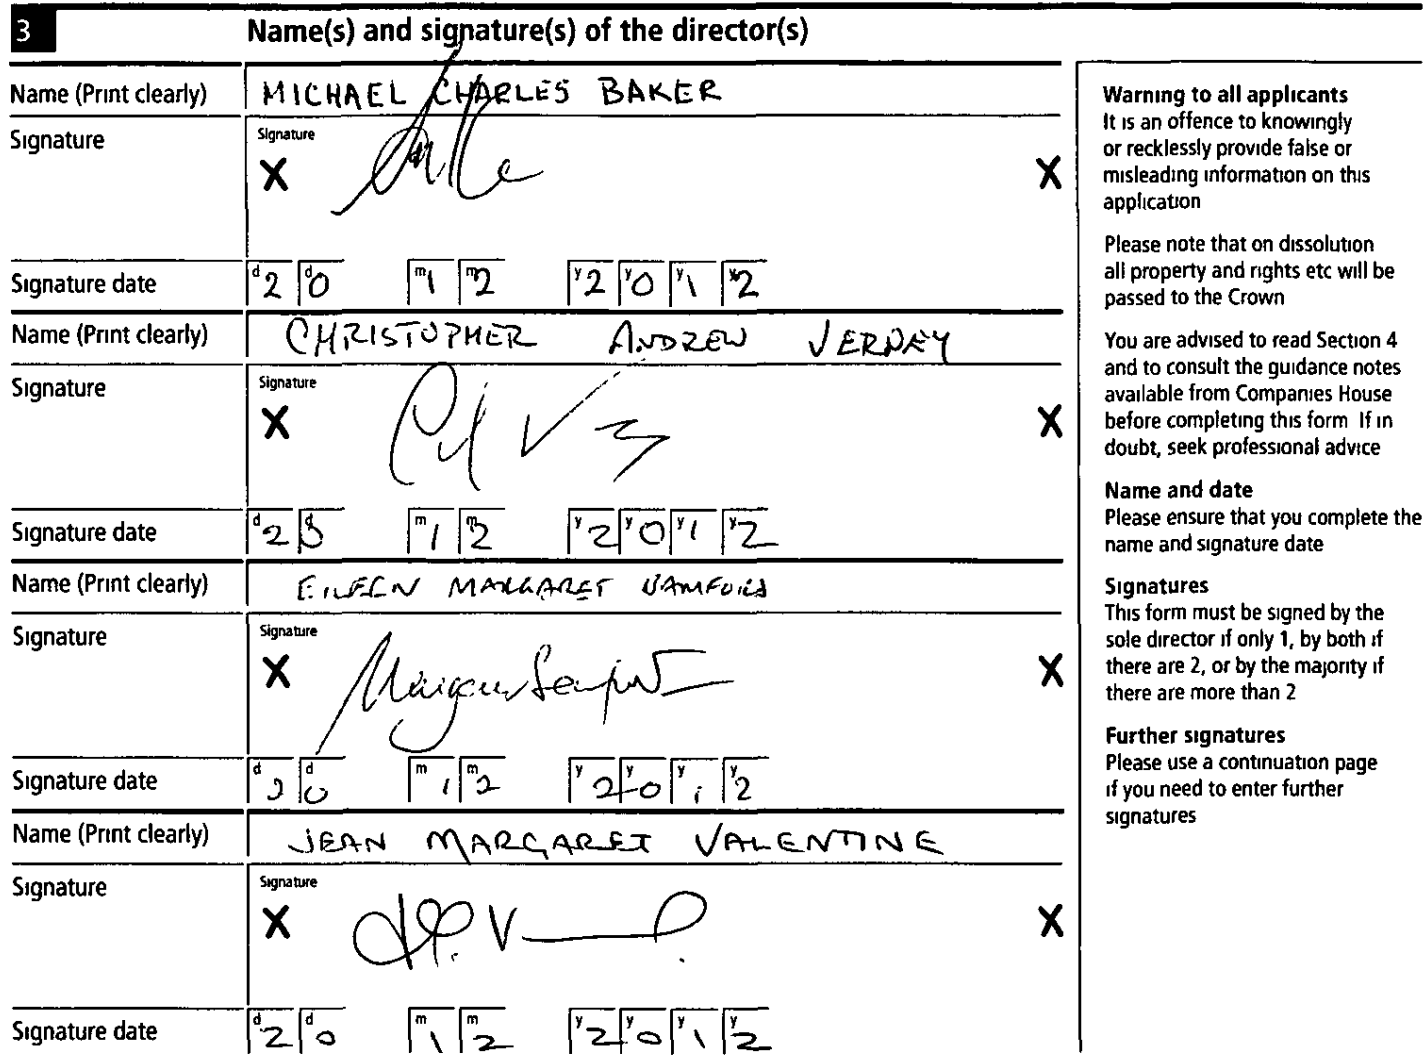 3 Name(s) and signature(s) of the director(s)
Name (Print clearly) MICHAEL CHARLES BAKER
Signature Signature
X X
Signature date d2 d0 m1 m2 y2 y0 y1 y2
Name (Print clearly) CHRISTOPHER ANDREW VERNEY
Signature Signature
X X
Signature date d2 d0 m1 m2 y2 y0 y1 y2
Name (Print clearly) EILEEN MARGARET
Signature Signature
X X
Signature date d2 d0 m1 m2 y2 y0 y1 y2
Name (Print clearly) JEAN MARGARET VALENTINE
Signature Signature
X X
Signature date d2 d0 m1 m2 y2 y0 y1 y2
Warning to all applicants
It is an offence to knowingly
or recklessly provide false or
misleading information on this
application
Please note that on dissolution
all property and rights etc will be
passed to the Crown
You are advised to read Section 4
and to consult the guidance notes
available from Companies House
before completing this form If in
doubt, seek professional advice
Name and date
Please ensure that you complete the
name and signature date
Signatures
This form must be signed by the
sole director if only 1, by both if
there are 2, or by the majority if
there are more than 2
Further signatures
Please use a continuation page
if you need to enter further
signatures